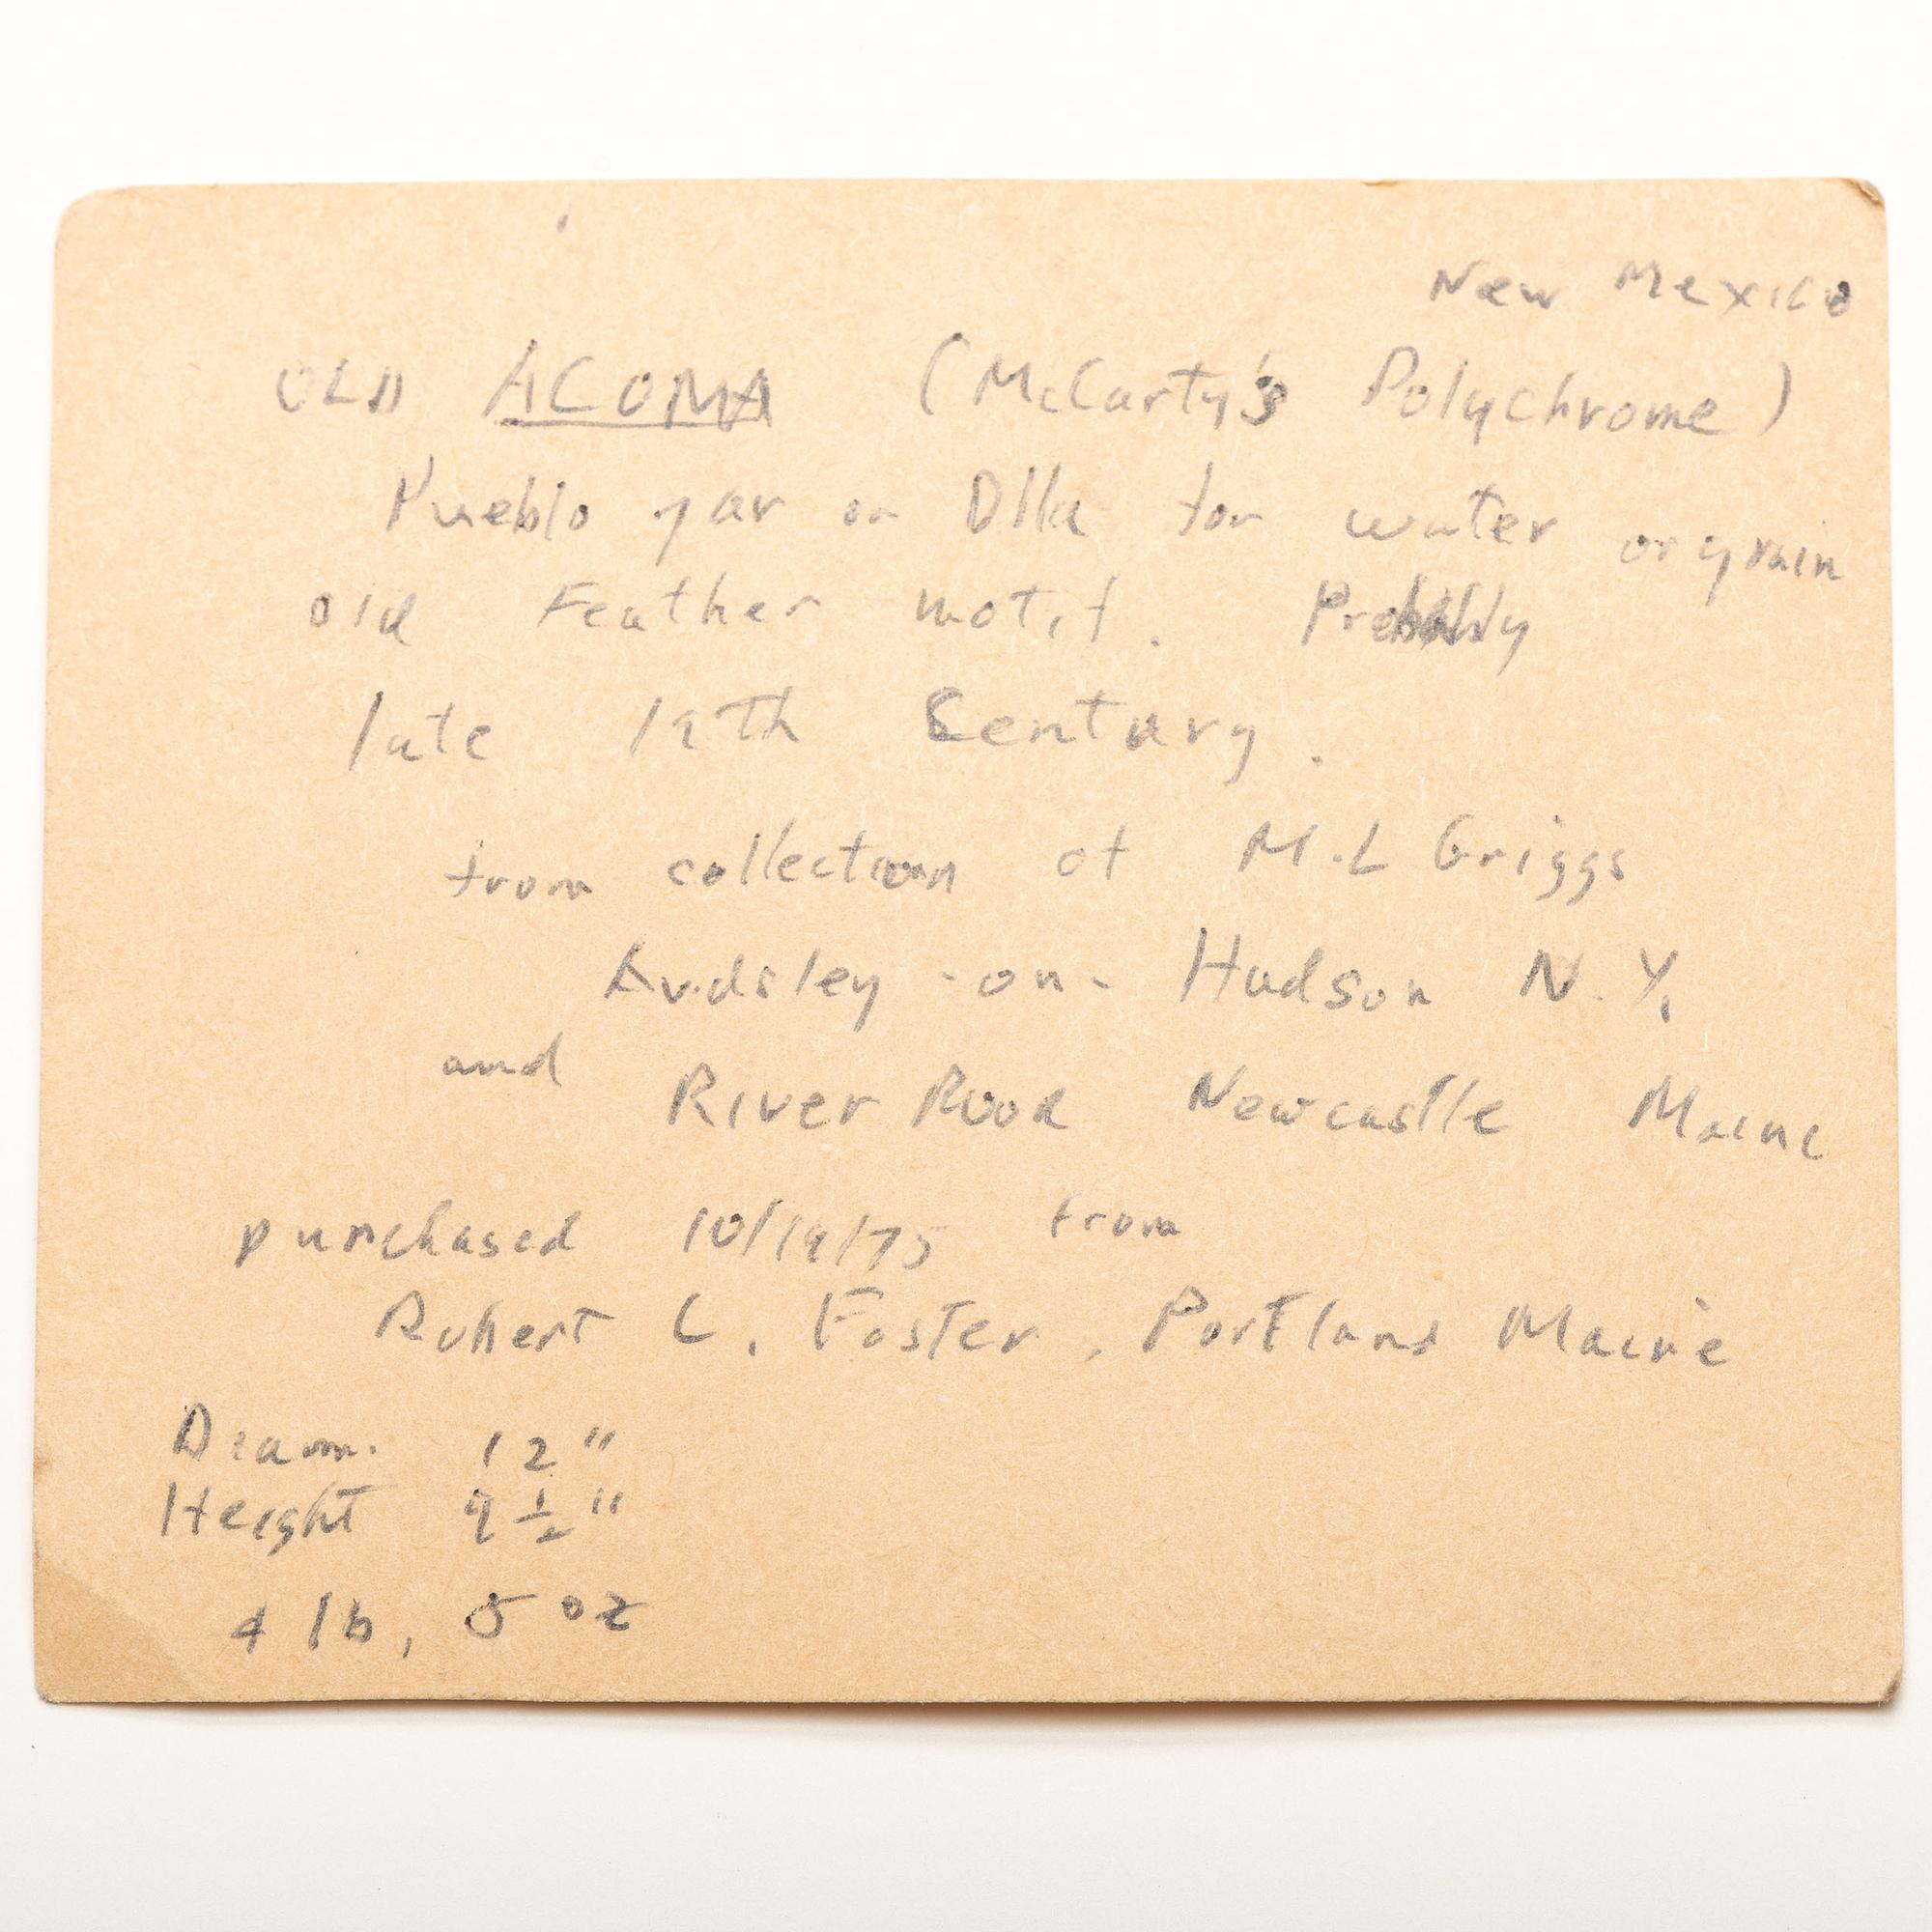 New Mexico
OLD ACOMA (McCarty's Polychrome)
Pueblo jar or Olla for water or grain
old Feather motif. Probably
late 19Th Century.
from collection of M.L Griggs
Ardsley-on-Hudson N.Y.
and River Road Newcastle Maine
purchased 10/19/75 from
Robert L. Foster, Portland Maine
Diam. 12"
Height 9 1/2"
4 lb, 5 oz